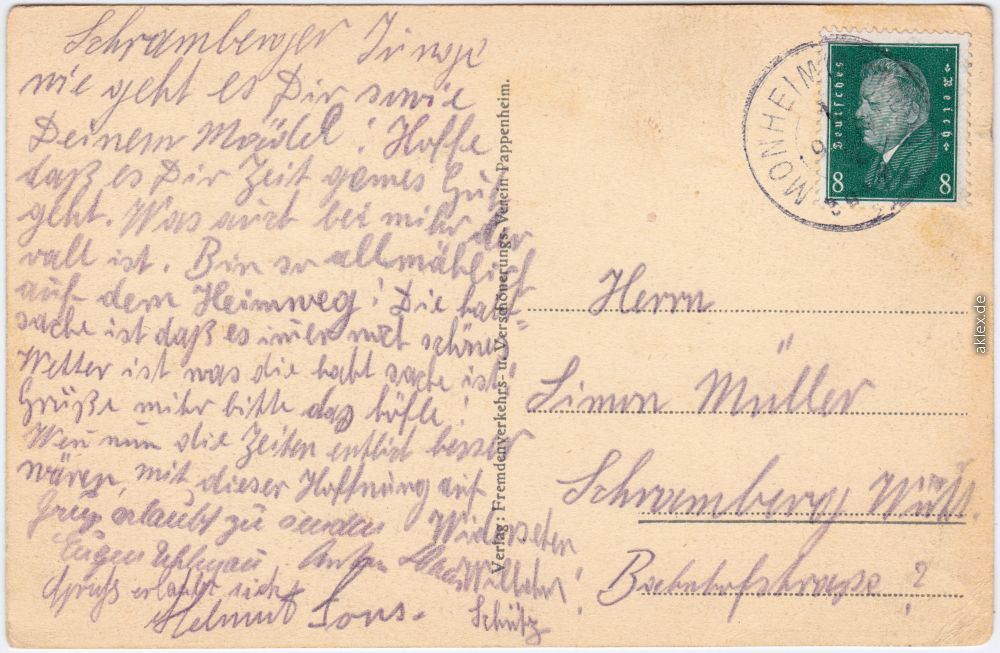 Schramberger Junge
wie geht es Dir sowie
Deinem Mädel! Hoffe
daß es Dir Zeit gemes Gut
geht. Was auch bei mihr der
vall ist. Bin so allmählich
auf dem Heimweg! Die haubt
sache ist daß es imer noch schönes
Wetter ist was die habt sache ist"
Grüße mihr bitte das höfle!
Wen nun die Zeiten entlich besser
wären, mit dieser Hoffnung auf
Widersehen
Gruß erlaubt zu senden
Eugen
Willehr!
Gruß erlaubt sich
Helmut Sons.
Schütz
Verlag: Fremdenverkehrs- u. Verschönerungs-Verein Pappenheim.
MONHEIM
Deutsches Reich
8 8
Herrn
Simon Müller
Schramberg Württ.
Bahnhofstrasse ?
aklex.de